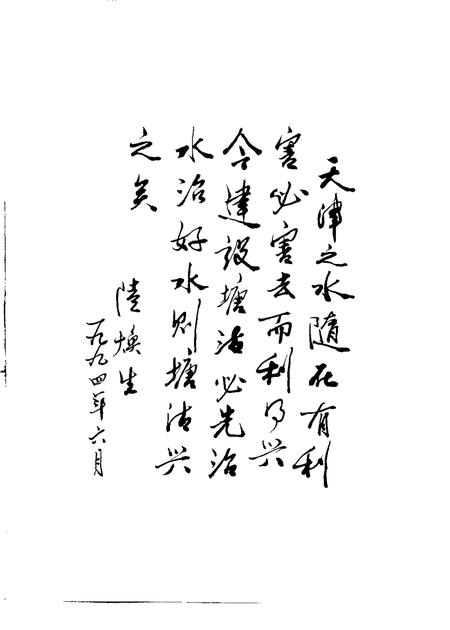 天津之水隨在有利
害必害去而利乃兴
今建设塘沽必先治
水治好水则塘沽兴
之矣
陸焕生
一九九四年六月